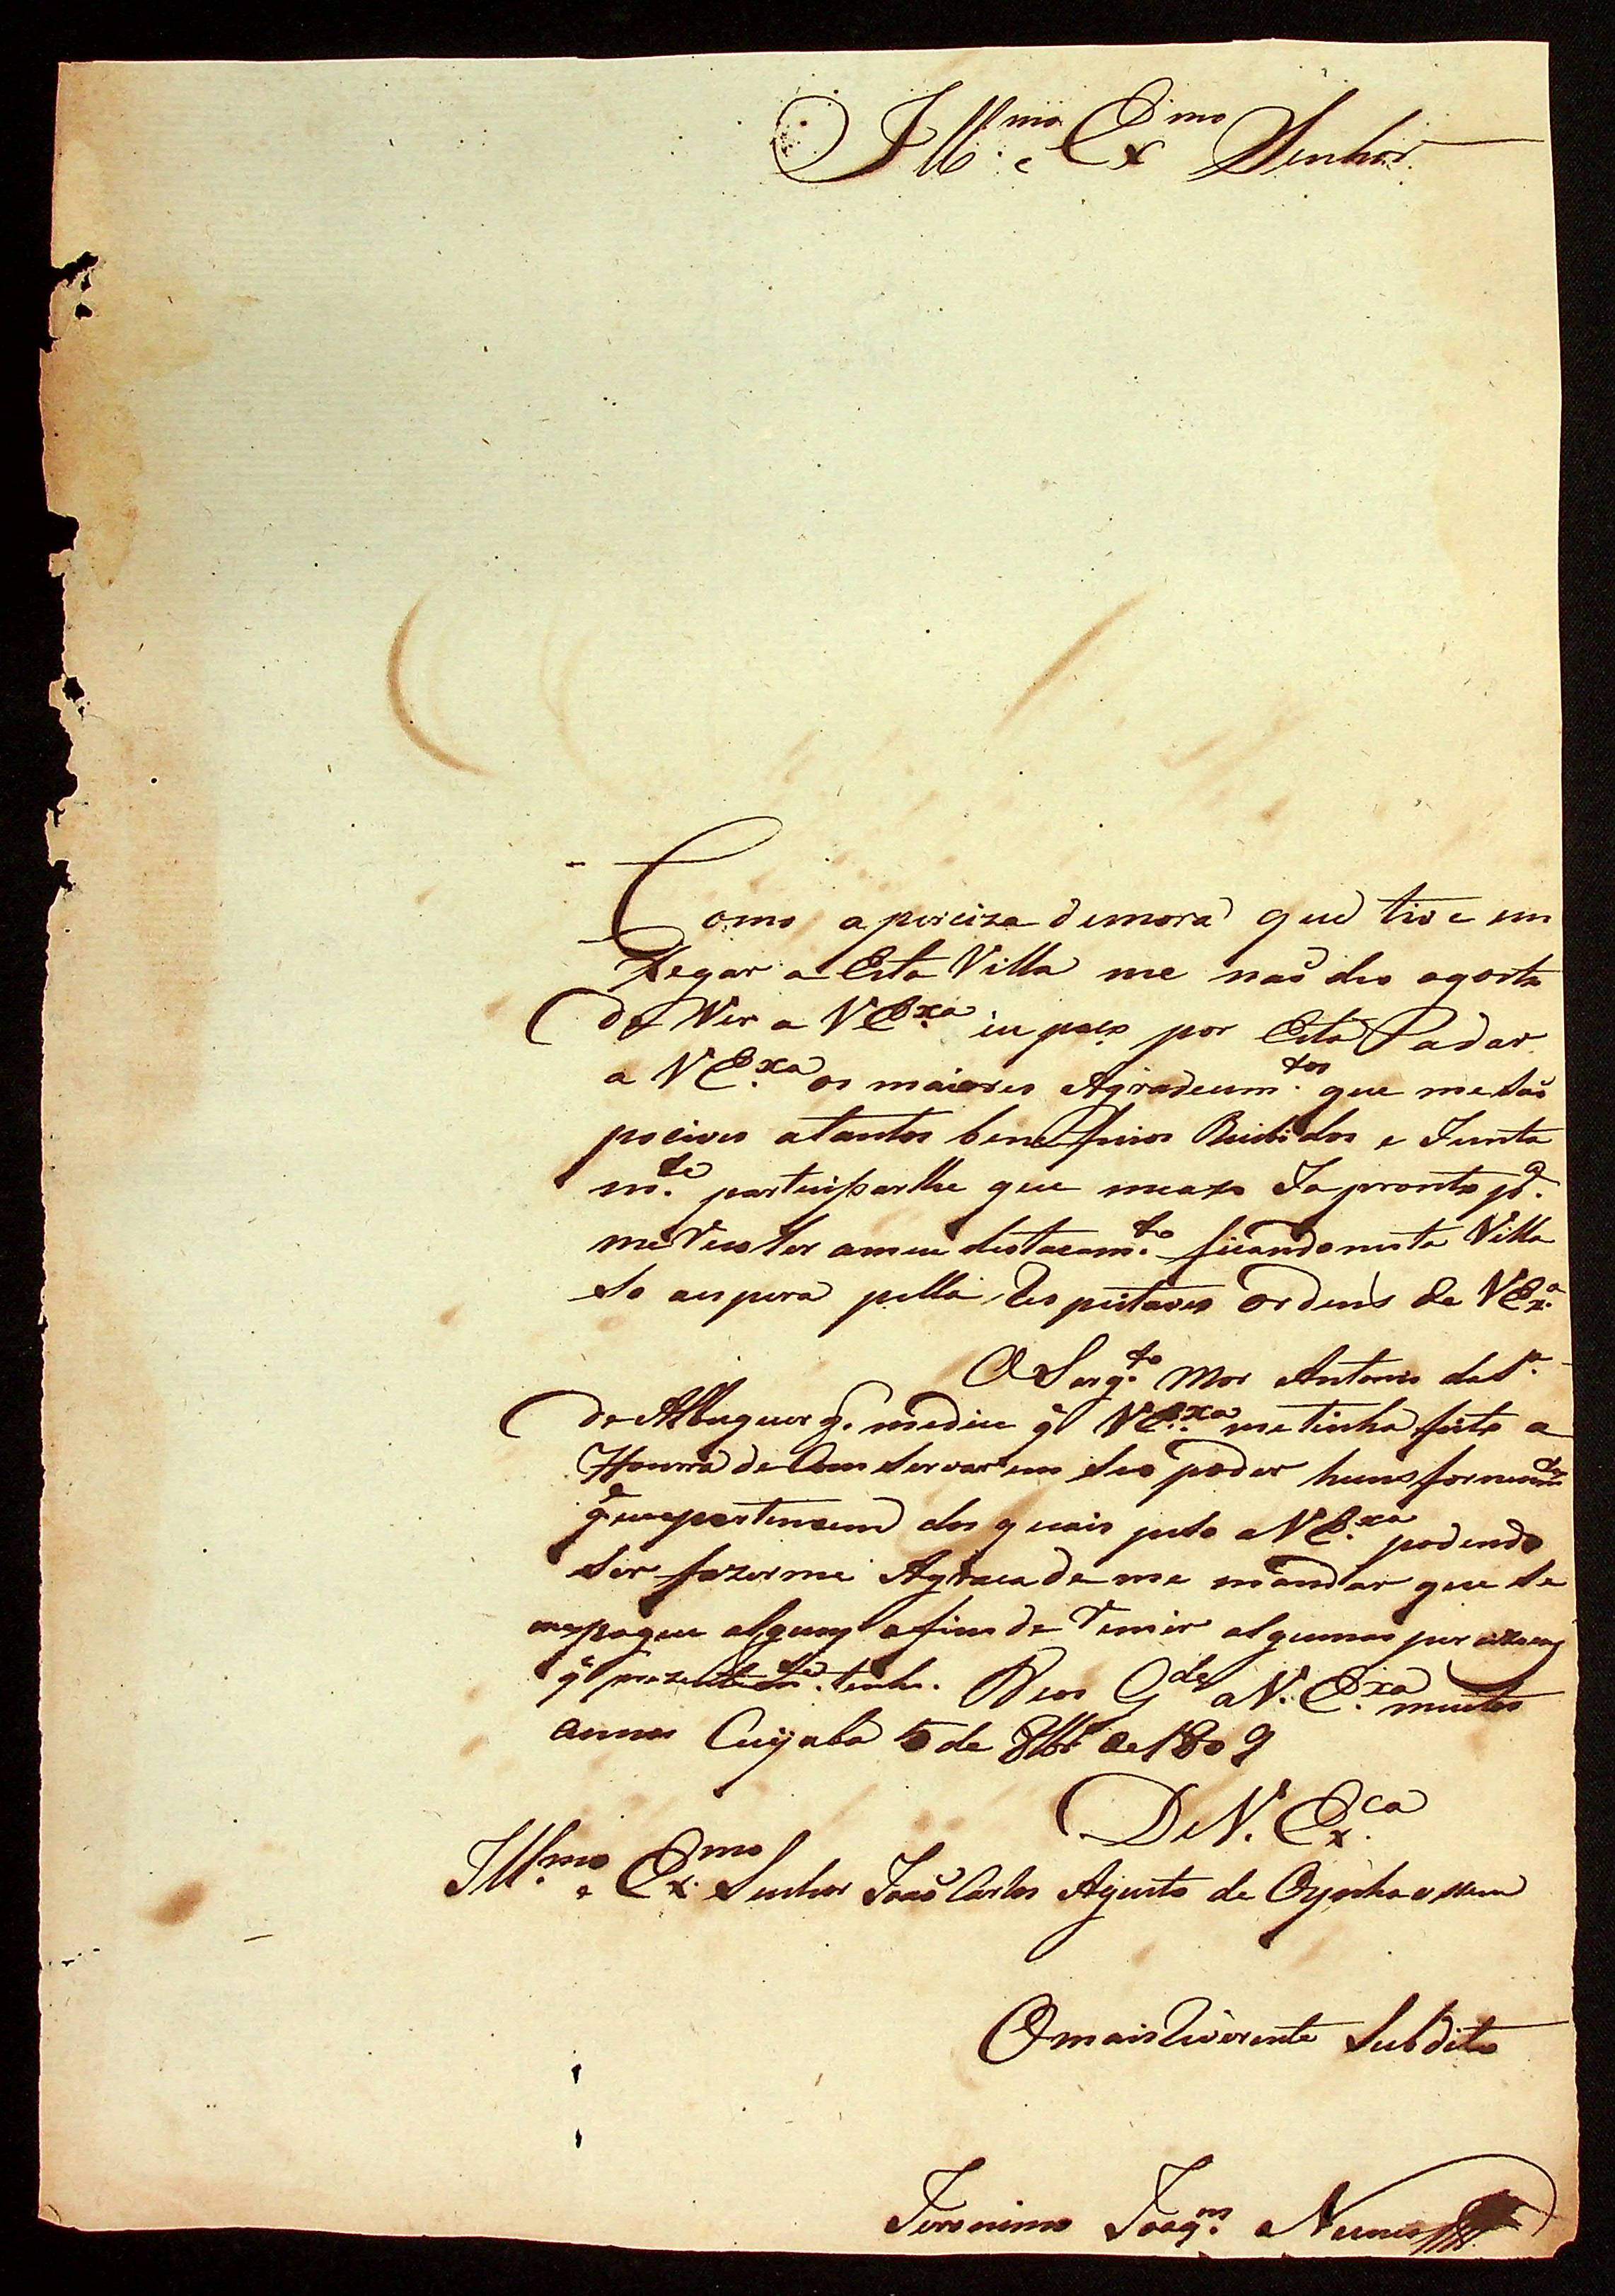 Ill.mo e Ex.mo Senhor
Como a perciza demora que tive em
xegar a Esta Villa me naõ deo agosto
de Ver a V Ex.ca por Esta adar
a V Ex.ca os maiores Agradecim.tos que mesaõ
pociveis atantos beneficios Recibidos e Junta
m.te participarlhe que meaxo Ja pronto p.a
me Recolher ameu destacam.to ficando nesta Villa
So aespera pellas Respeitaveis Ordens de V Ex.a
O Sarg.to Mor Antonio da S.a
de Albuquerq. medice q̃ V Ex.ca metinha feito a
Honrra de Conservar em Seo poder huns
dos quais pesso a V Ex.ca podendo
Ser fazerme Agraca de me mandar que Se
mepague alguns afim de Remir algumas percizoens
q̃ prezentem.te tenho. Deos G.de a V. Ex.ca muitos
annos Cuÿaba 5 de 8br.o de 1809
De V. Ex.ca
Ill.mo e Ex.mo Senhor Joaõ Carlos Agusto de Oynhaussem
O mais Reverente Subdito
Jeronimo Joaq.m Nunes